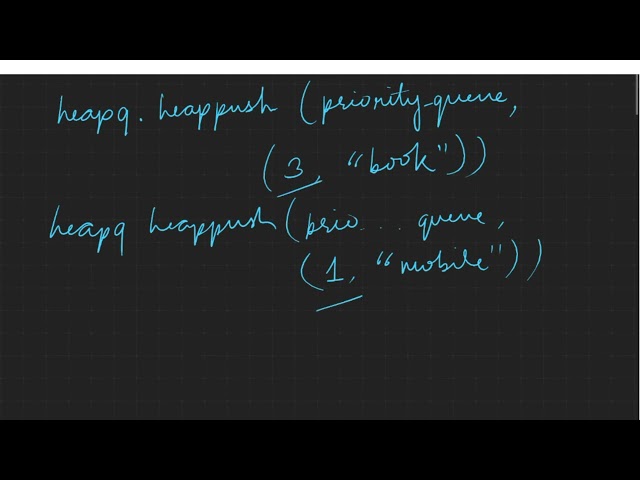 heapq. heappush (priority-queue,
(3, "book"))
heapq heappush (prio... queue,
(1, "mobile"))